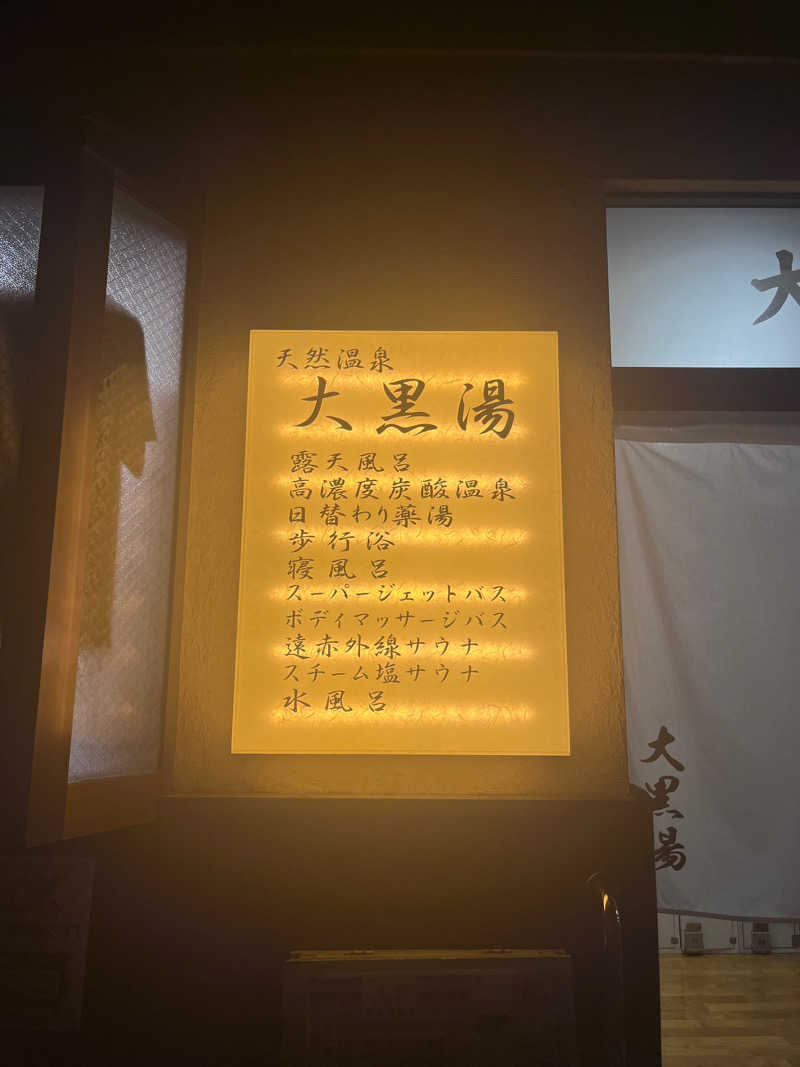 天然温泉
大黒湯
露天風呂
高濃度炭酸温泉
日替わり薬湯
歩行浴
寝風呂
スーパージェットバス
ボディマッサージバス
遠赤外線サウナ
スチーム塩サウナ
水風呂
大
大黒湯